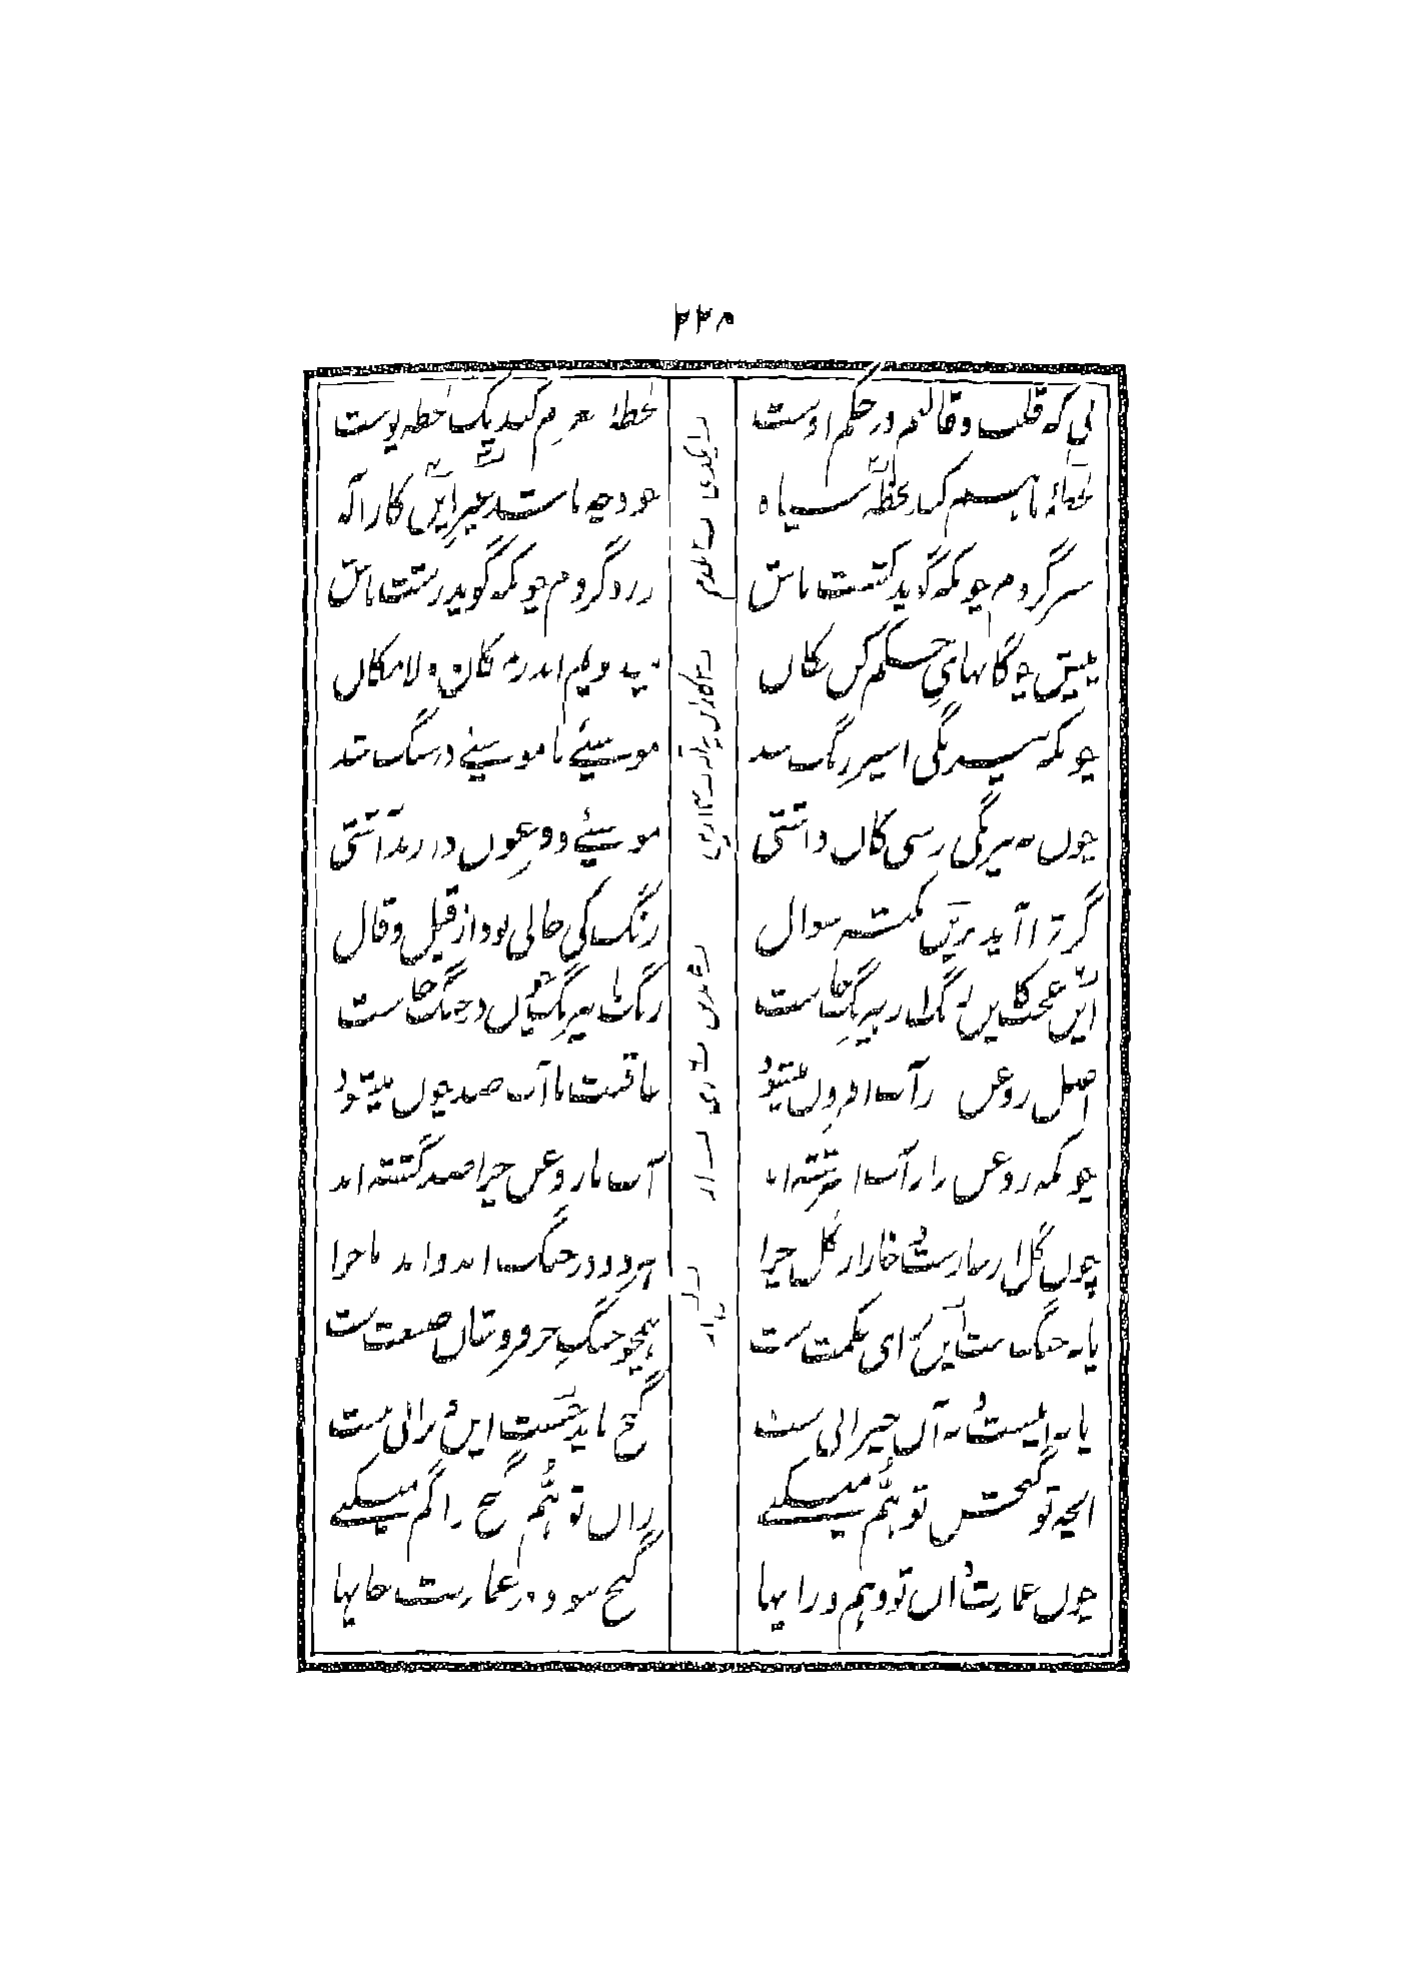 ۲۲۸
نی که قلب و قالبم در حکم اوست
لحظهٔ مغزم کند یک لحظه پوست
لحظهٔ ماهم کند یک لحظه سیاه
خود چه باشد غیر این کار اله
سبز گردم چونکه گوید کشت باش
زرد گردم چونکه گوید زشت باش
پیش چوگانهای حکم کن فکان
میدویم اندر مکان و لامکان
چونکه بیرنگی اسیر رنگ شد
موسئے با موسئے در جنگ شد
چون به بیرنگی رسی کان داشتی
موسئے و فرعون دارند آشتی
گر ترا آید برین نکته سوال
رنگ کی خالی بود از قیل و قال
این عجب کاین رنگ از بیرنگ خاست
رنگ با بیرنگ چون در جنگ خاست
اصل روغن ز آب افزون میشود
عاقبت با آب ضد چون میشود
چونکه روغن را ز آب اسرشته‌اند
آب با روغن چرا ضد گشته‌اند
چون گل از خارست و خار از گل چرا
هر دو در جنگ اند و اند ماجرا
یا نه جنگ ست این برای حکمت ست
همچو جنگِ خر فروشان صنعت ست
یا نه اینست و نه آن حیرانی ست
گنج باید جست این ویرانی ست
آنچه تو گنجش توهّم میکنے
زان توهّم گنج را گم میکنے
چون عمارت دان تو وهم و رایها
گنج نبود در عمارت جایها